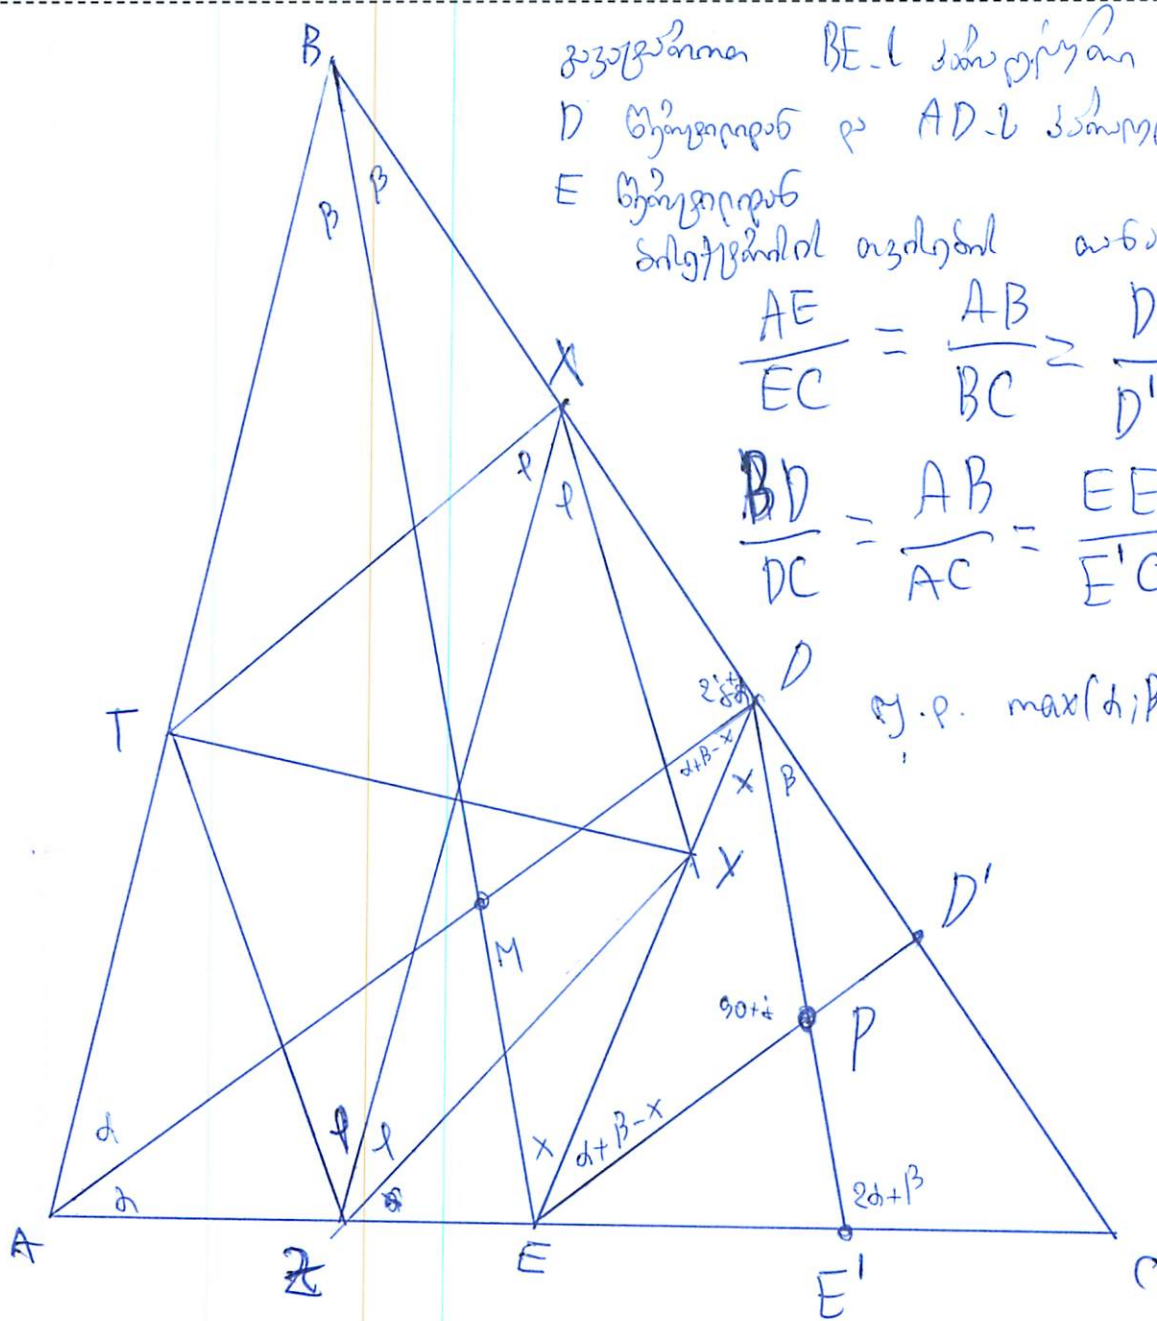 გავავლოთ BE-ს პარალელური
D წერტილიდან და AD-ს
E წერტილიდან
ბისექტრისის თვისების
AE/EC = AB/BC = D/D'
BD/DC = AB/AC = EE/E'C
max(α;β
B
β
β
X
φ
φ
T
D
α+β-x
x
β
Y
D'
M
90+α
P
α
α
φ
φ
x
α+β-x
2α+β
A
Z
E
E'
C